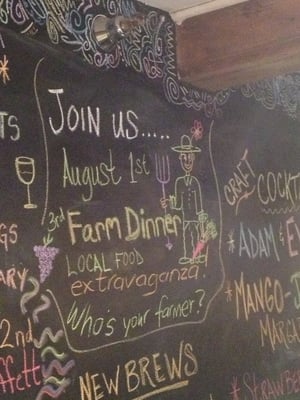 JOIN US.....
August 1st
3rd
Farm Dinner
LOCAL FOOD
extravaganza!
Who's your farmer?
NEW BREWS
2nd
CRAFT
COCKT
ADAM & EV
* MANGO-D
MARGA
* STRAWBER